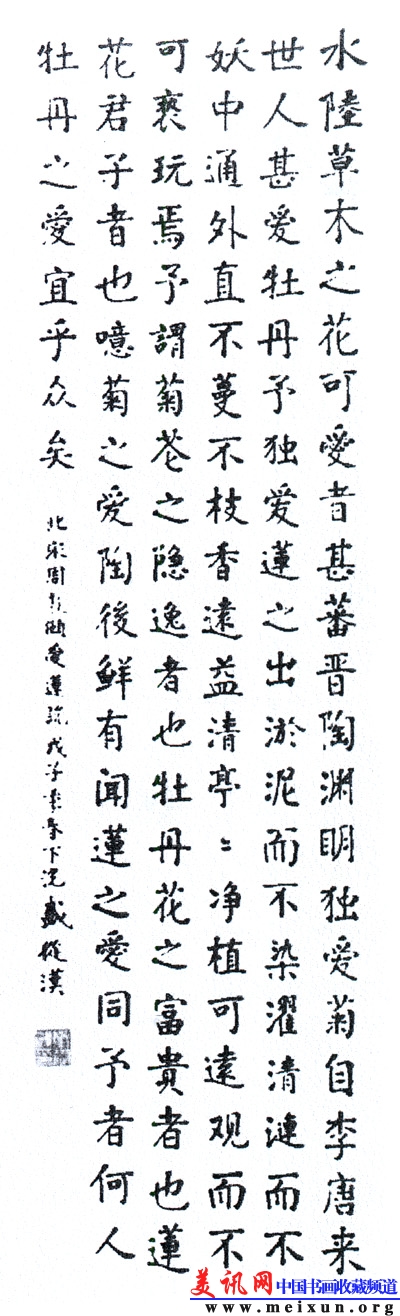 水陸草木之花可愛者甚蕃晋陶渊明独愛菊自李唐来
世人甚爱牡丹予独爱蓮之出淤泥而不染濯清漣而不
妖中通外直不蔓不枝香遠益清亭〻净植可遠观而不
可褻玩焉予謂菊花之隐逸者也牡丹花之富貴者也蓮
花君子者也噫菊之爱陶後鲜有闻蓮之愛同予者何人
牡丹之愛宜乎众矣
北宋周敦頤愛蓮説戊子季春下浣盛從漢
美讯网 中国书画收藏频道
www.meixun.org